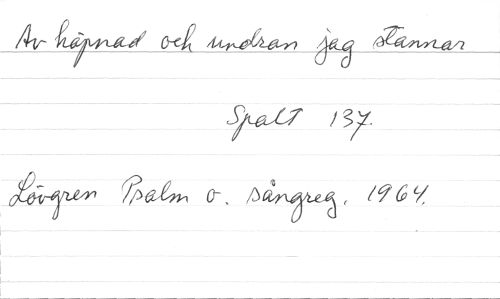 Av häpnad och undran jag stannar
Spalt 137.
Lövgren Psalm o. sångreg. 1964.